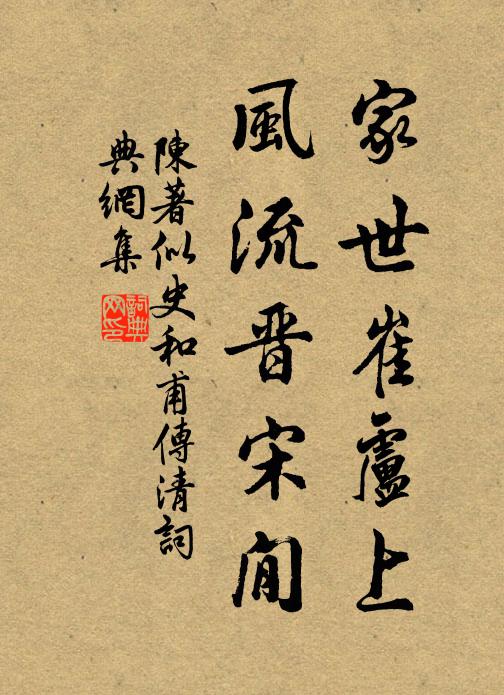 家世崔盧上
風流晋宋間
陳著似史和甫傳清詞
典網集
詞典網印